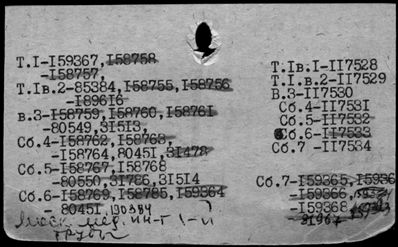 Т.I-I59367, I58758
-I58757,
Т.Iв.2-85384, I58755, I58756
-I89616
в.3-I58759, I58760, I58761
-80549, 31513,
Сб.4-I58762, I58763
-I58764, 80451, 31478
Сб.5-I58767, I58768
-80550, 31786, 31514
Сб.6-I58769, I58785, I59364
- 80451, 190394
Моск. мед. ин-т 1-й
труды
Т.Iв.I-II7528
Т.I.в.2-II7529
В.3-II7530
Сб.4-II7531
Сб.5-II7532
Сб.6-II7533
Сб.7 -II7534
Сб.7-I59365, I5936
-I59366,
-I59368